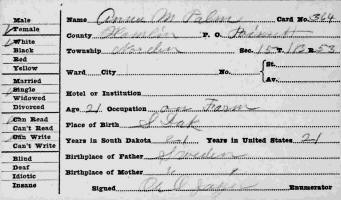 Male
Female
White
Black
Red
Yellow
Married
Single
Widowed
Divorced
Can Read
Can't Read
Can Write
Can't Write
Blind
Deaf
Idiotic
Insane
Name Anna M Palm Card No. 364
County Hamlin P. O.
Township Norden Sec. 15 T. 113 R. 53
Ward City No. St. Av.
Hotel or Institution
Age 21 Occupation on Farm
Place of Birth S Dak
Years in South Dakota 21 Years in United States 21
Birthplace of Father Sweden
Birthplace of Mother "
Signed Enumerator